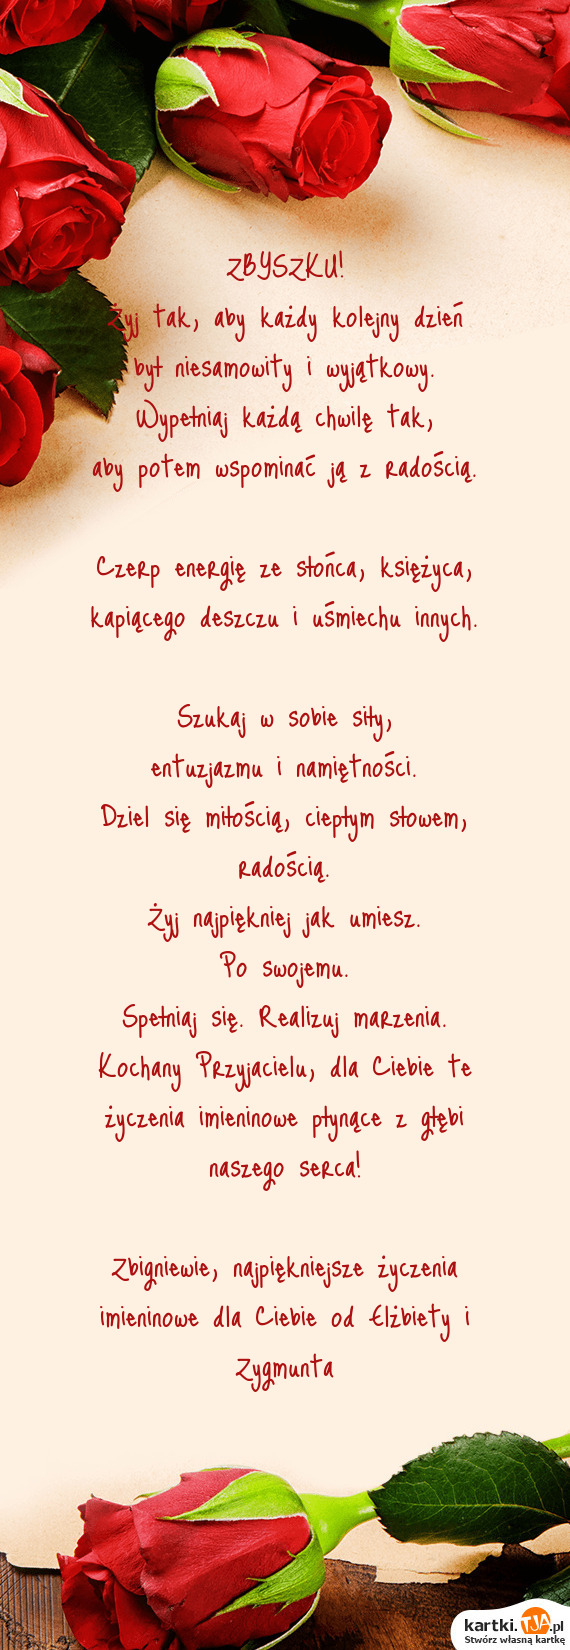 ZBYSZKU!
Żyj tak, aby każdy kolejny dzień
był niesamowity i wyjątkowy.
Wypełniaj każdą chwilę tak,
aby potem wspominać ją z radością.
Czerp energię ze słońca, księżyca,
kapiącego deszczu i uśmiechu innych.
Szukaj w sobie siły,
entuzjazmu i namiętności.
Dziel się miłością, ciepłym słowem,
radością.
Żyj najpiękniej jak umiesz.
Po swojemu.
Spełniaj się. Realizuj marzenia.
Kochany Przyjacielu, dla Ciebie te
życzenia imieninowe płynące z głębi
naszego serca!
Zbigniewie, najpiękniejsze życzenia
imieninowe dla Ciebie od Elżbiety i
Zygmunta
kartki.TJA.pl
Stwórz własną kartkę